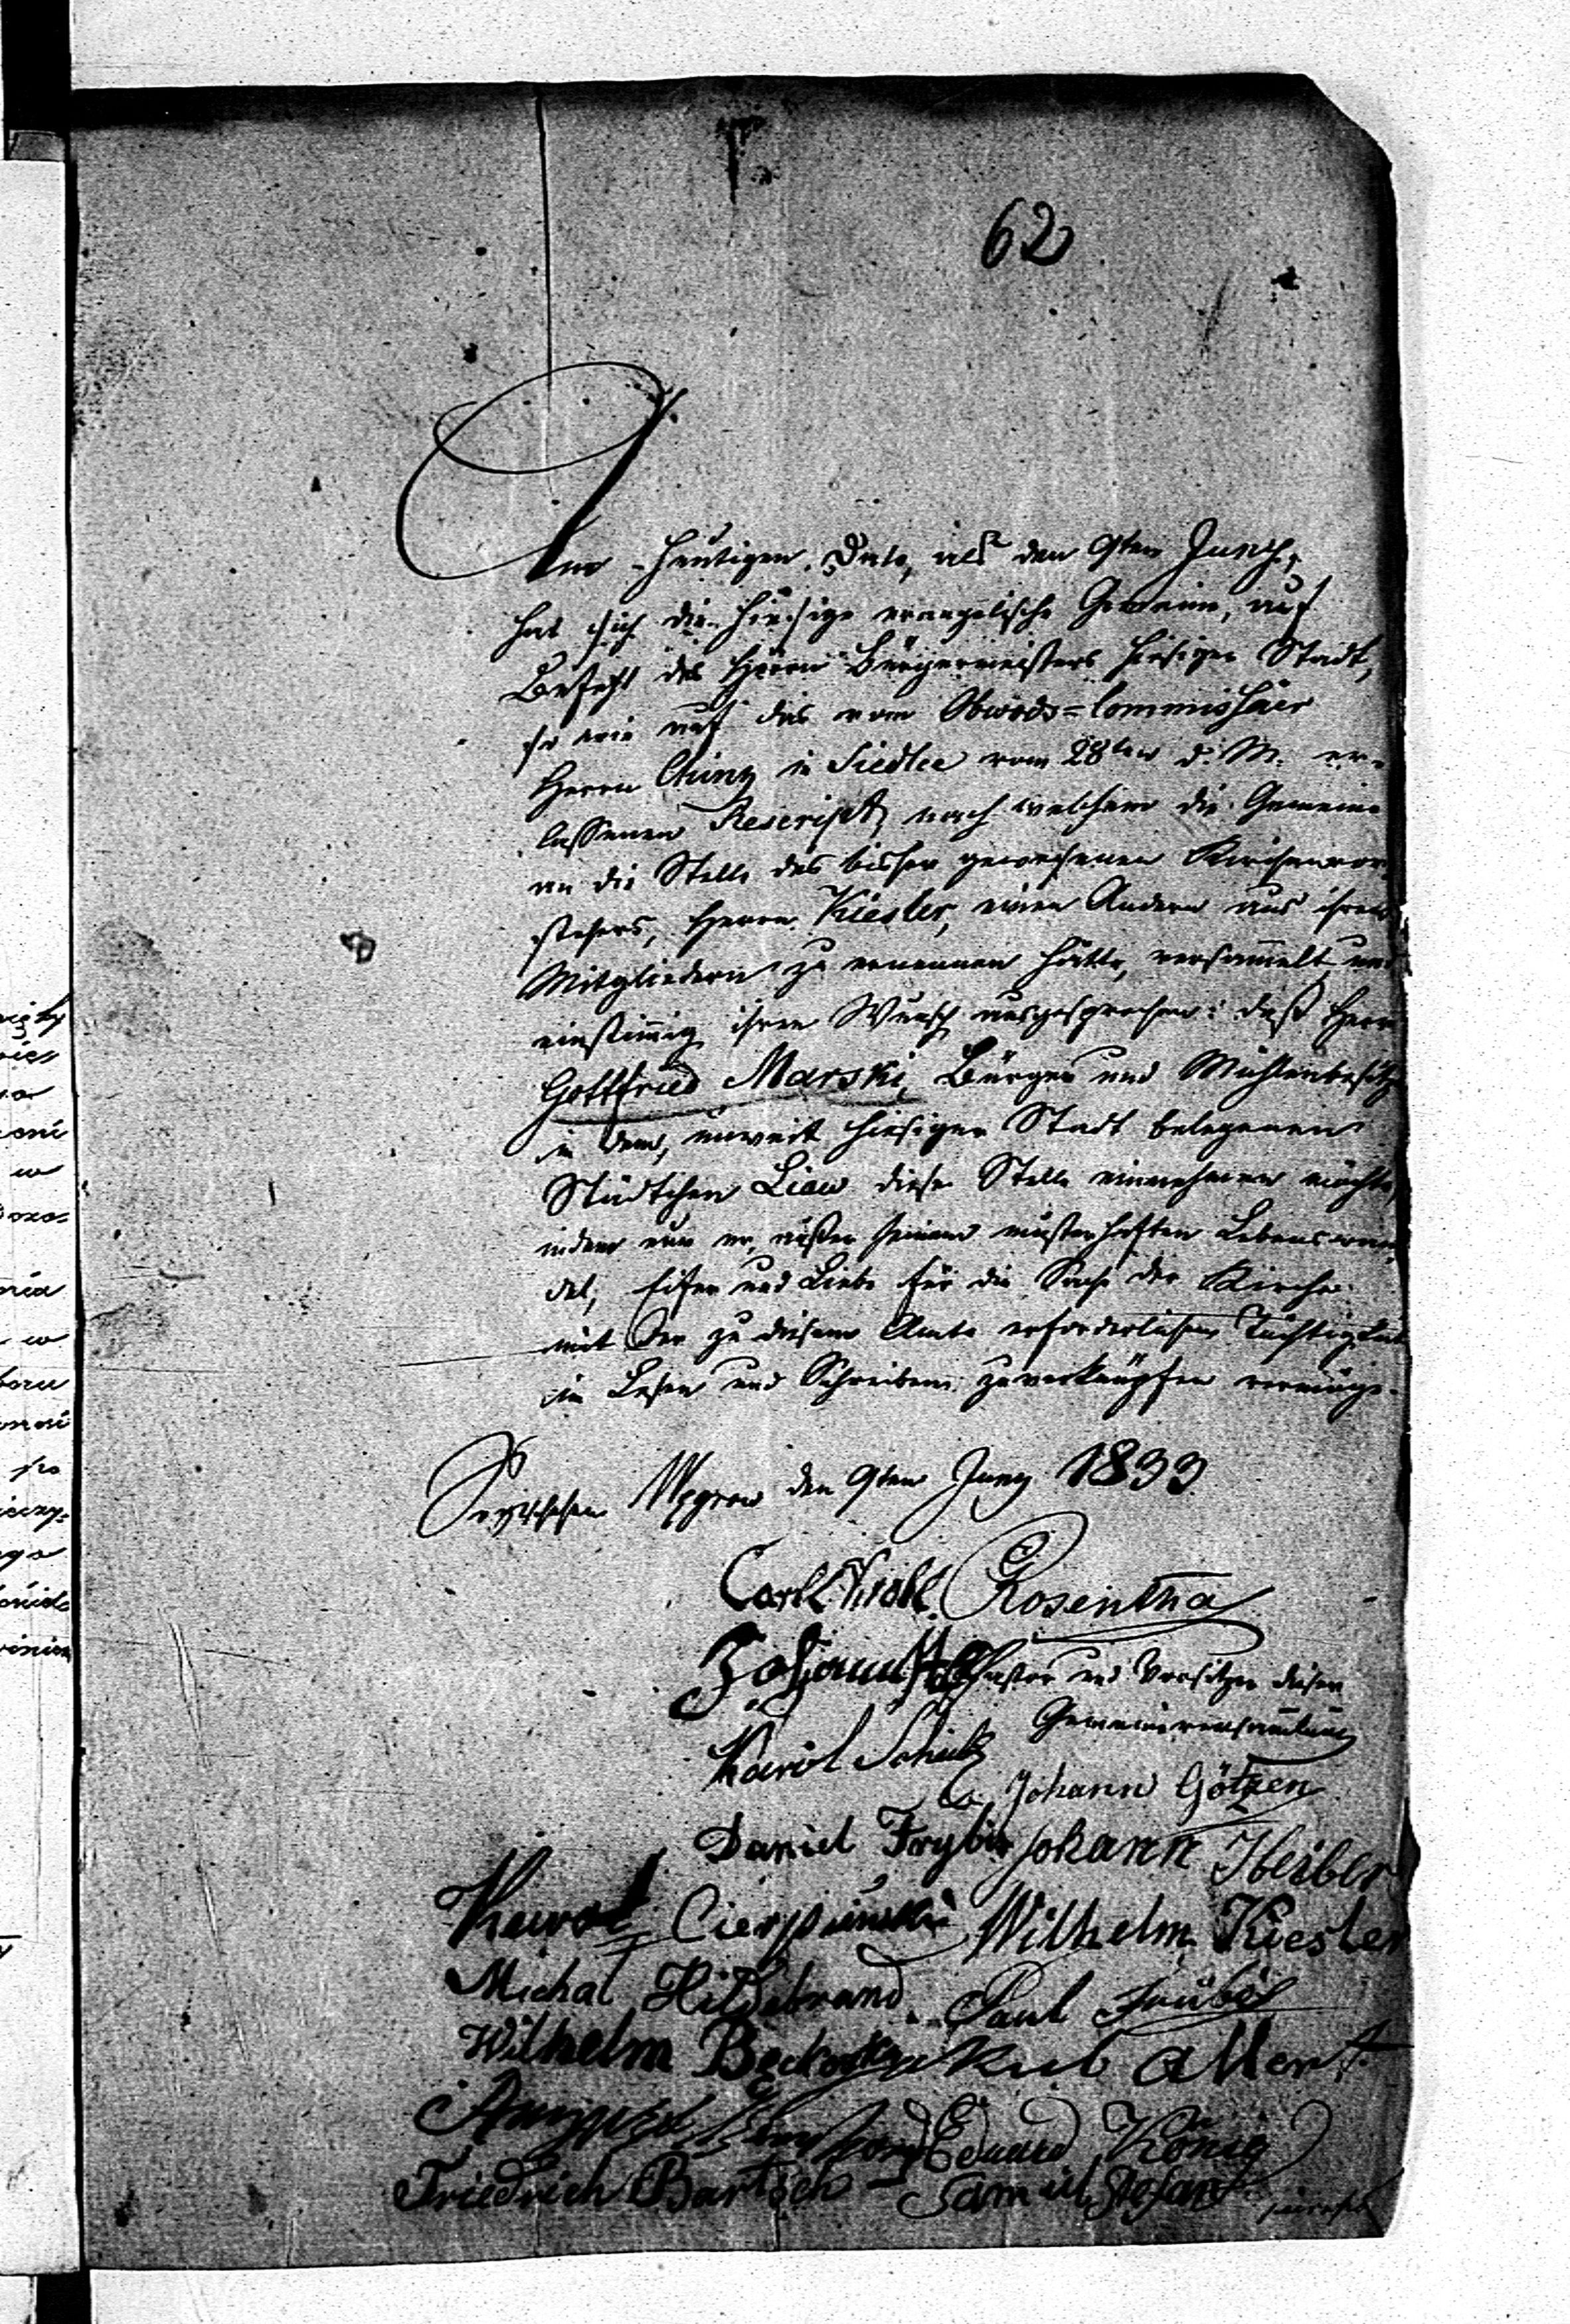 62
Am heutigen Dato, als den 9ten Juny,
hat sich die hiesige evangelische Gemeine, auf
Befehl des Herrn Bürgermeisters hiesiger Stadt,
so wie auf das vom Obwods=Commissair
Herrn Chinz in Siedlce vom 28ten d. M. er-
lassenen Rescript, nach welchem die Gemeine
an die Stelle des bisher gewesenen Kirchenvor-
stehers, Herrn Kiesler, einen Andern aus ihren
Mitgliedern zu ernennen hätte, versam̄elt und
einstim̄ig ihren Wunsch ausgesprochen: daß Herr
Gottfried Marski, Bürger und Mühlenbesitzer
in dem, unweit hiesiger Stadt belegenen
Städtchen Liew diese Stelle einnehmen möchte,
indem nur er, außer seinem musterhaften Lebenswan-
del, Eifer und Liebe für die Sache der Kirche
mit der zu diesem Amte erforderlichen Tüchtigkeit
im Lesen und Schreiben zu verknüpfen vermöge.
Geschehen Węgrow den 9ten Juny 1833
Carl Rosenthal
Johann Pastor und Vorsitzer dieser
Gemeinversam̄lung
Karol Schultz
Johann Götzen
Daniel Frybir Johann Heiber
Karol Cierpinski Wilhelm Kiesler
Michal Hildebrand Paul
Wilhelm Allert
August Eduard König
Friedrich Bartsch Samuel Stefan